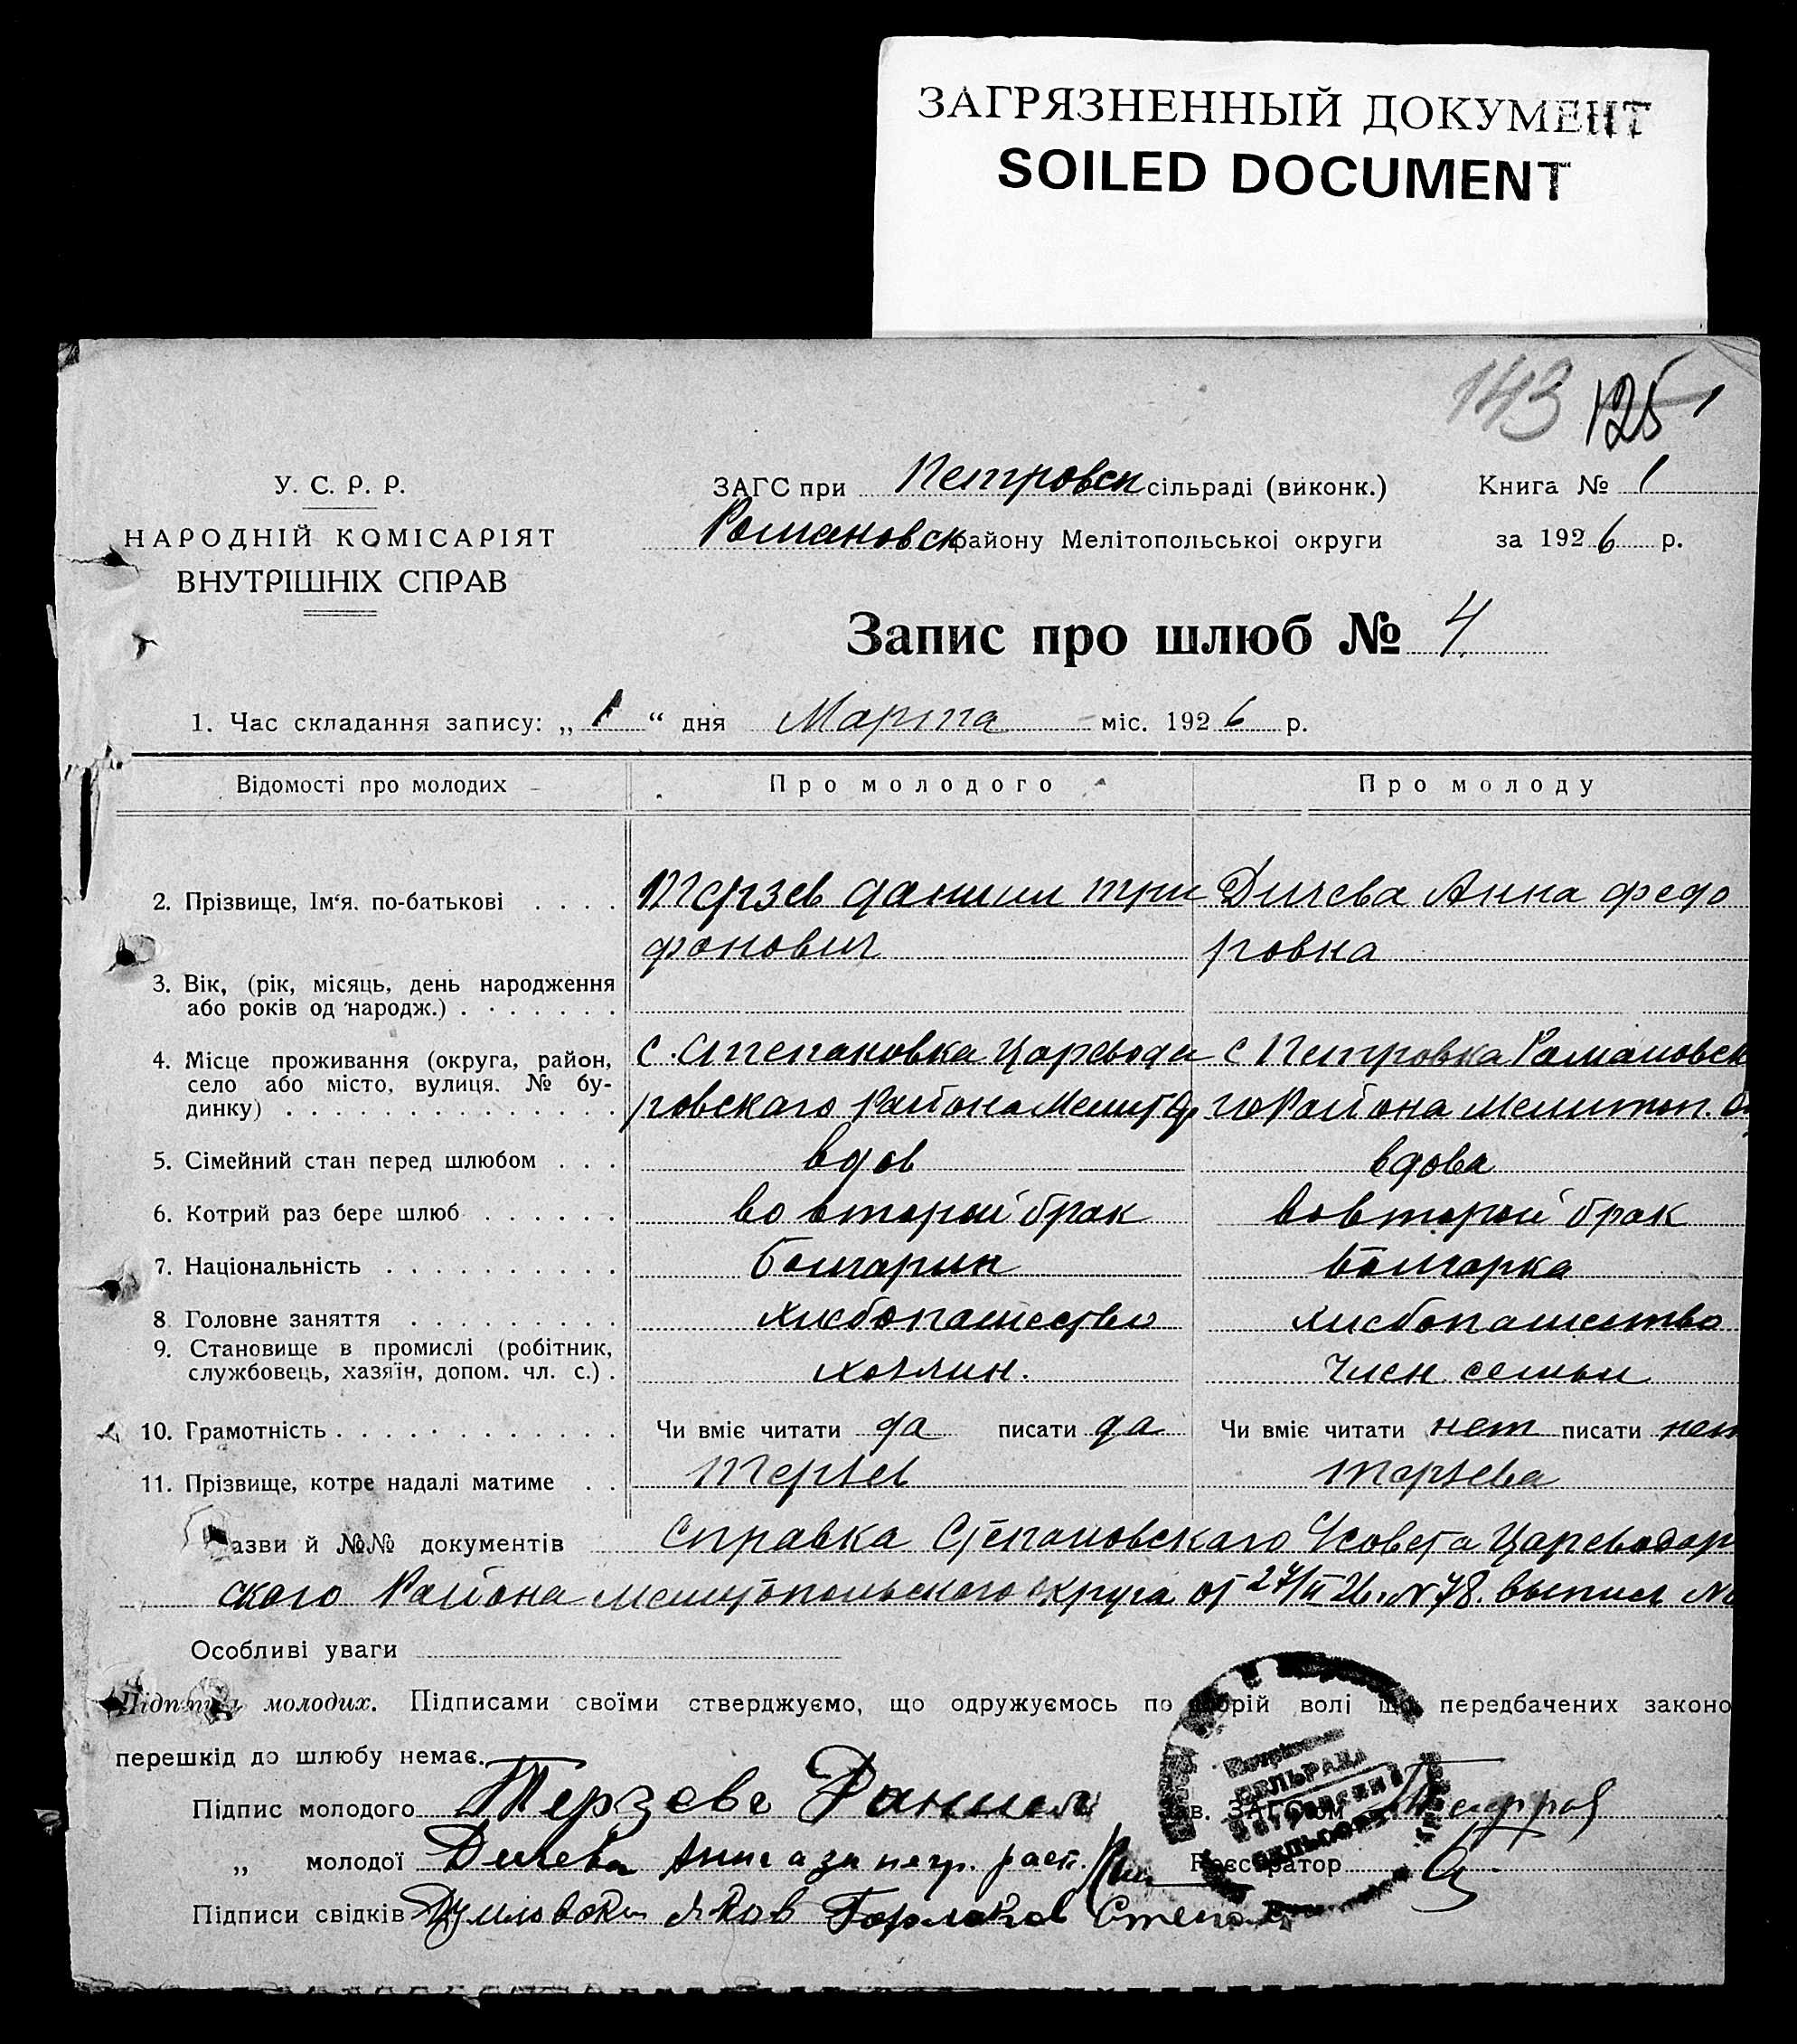 ЗАГРЯЗНЕННЫЙ ДОКУМЕНТ
SOILED DOCUMENT
143 125 1
У. С. Р. Р.
НАРОДНІЙ КОМІСАРІЯТ
ВНУТРІШНІХ СПРАВ
ЗАГС при Петровск сільраді (виконк.) Книга № 1
Романовск району Мелітопольської округи за 1926 р.
Запис про шлюб № 4
1. Час складання запису: „1“ дня Марта міс. 1926 р.
Відомості про молодих Про молодого Про молоду
2. Прізвище, Ім'я. по-батькові Терзев Даниил Три Дичева Анна Федо
фонович ровна
3. Вік, (рік, місяць, день народження
або років од народж.)
4. Місце проживання (округа, район, с. Степановка Царевода с Петровка Романовск
село або місто, вулиця. № бу-
динку) ровскаго Района Мелит го Района Мелитоп.
5. Сімейний стан перед шлюбом вдов вдова
6. Котрий раз бере шлюб во второй брак во второй брак
7. Національність болгарин болгарка
8 Головне заняття хлебопашество хлебопашество
9. Становище в промислі (робітник,
службовець, хазяїн, допом. чл. с.) хозяин. член семьи
10. Грамотність Чи вміє читати да писати да Чи вміє читати нет писати нет
11. Прізвище, котре надалі матиме Терзев Терзева
азви й №№ документів Справка Степановскаго Совета Цареводар
ского Района Мелитопольского округа от 27/II 26. № 78. выпись №
Особливі уваги
Підписи молодих. Підписами своїми стверджуємо, що одружуємось по добрій волі що передбачених законо
перешкід до шлюбу немає.
Підпис молодого Терзевъ Даниел Зав. ЗАГС'ом
„ молодої Дичева Анна а за негр. расп. Реєстратор
Підписи свідків Яков Степан
СЕЛЬРАДА